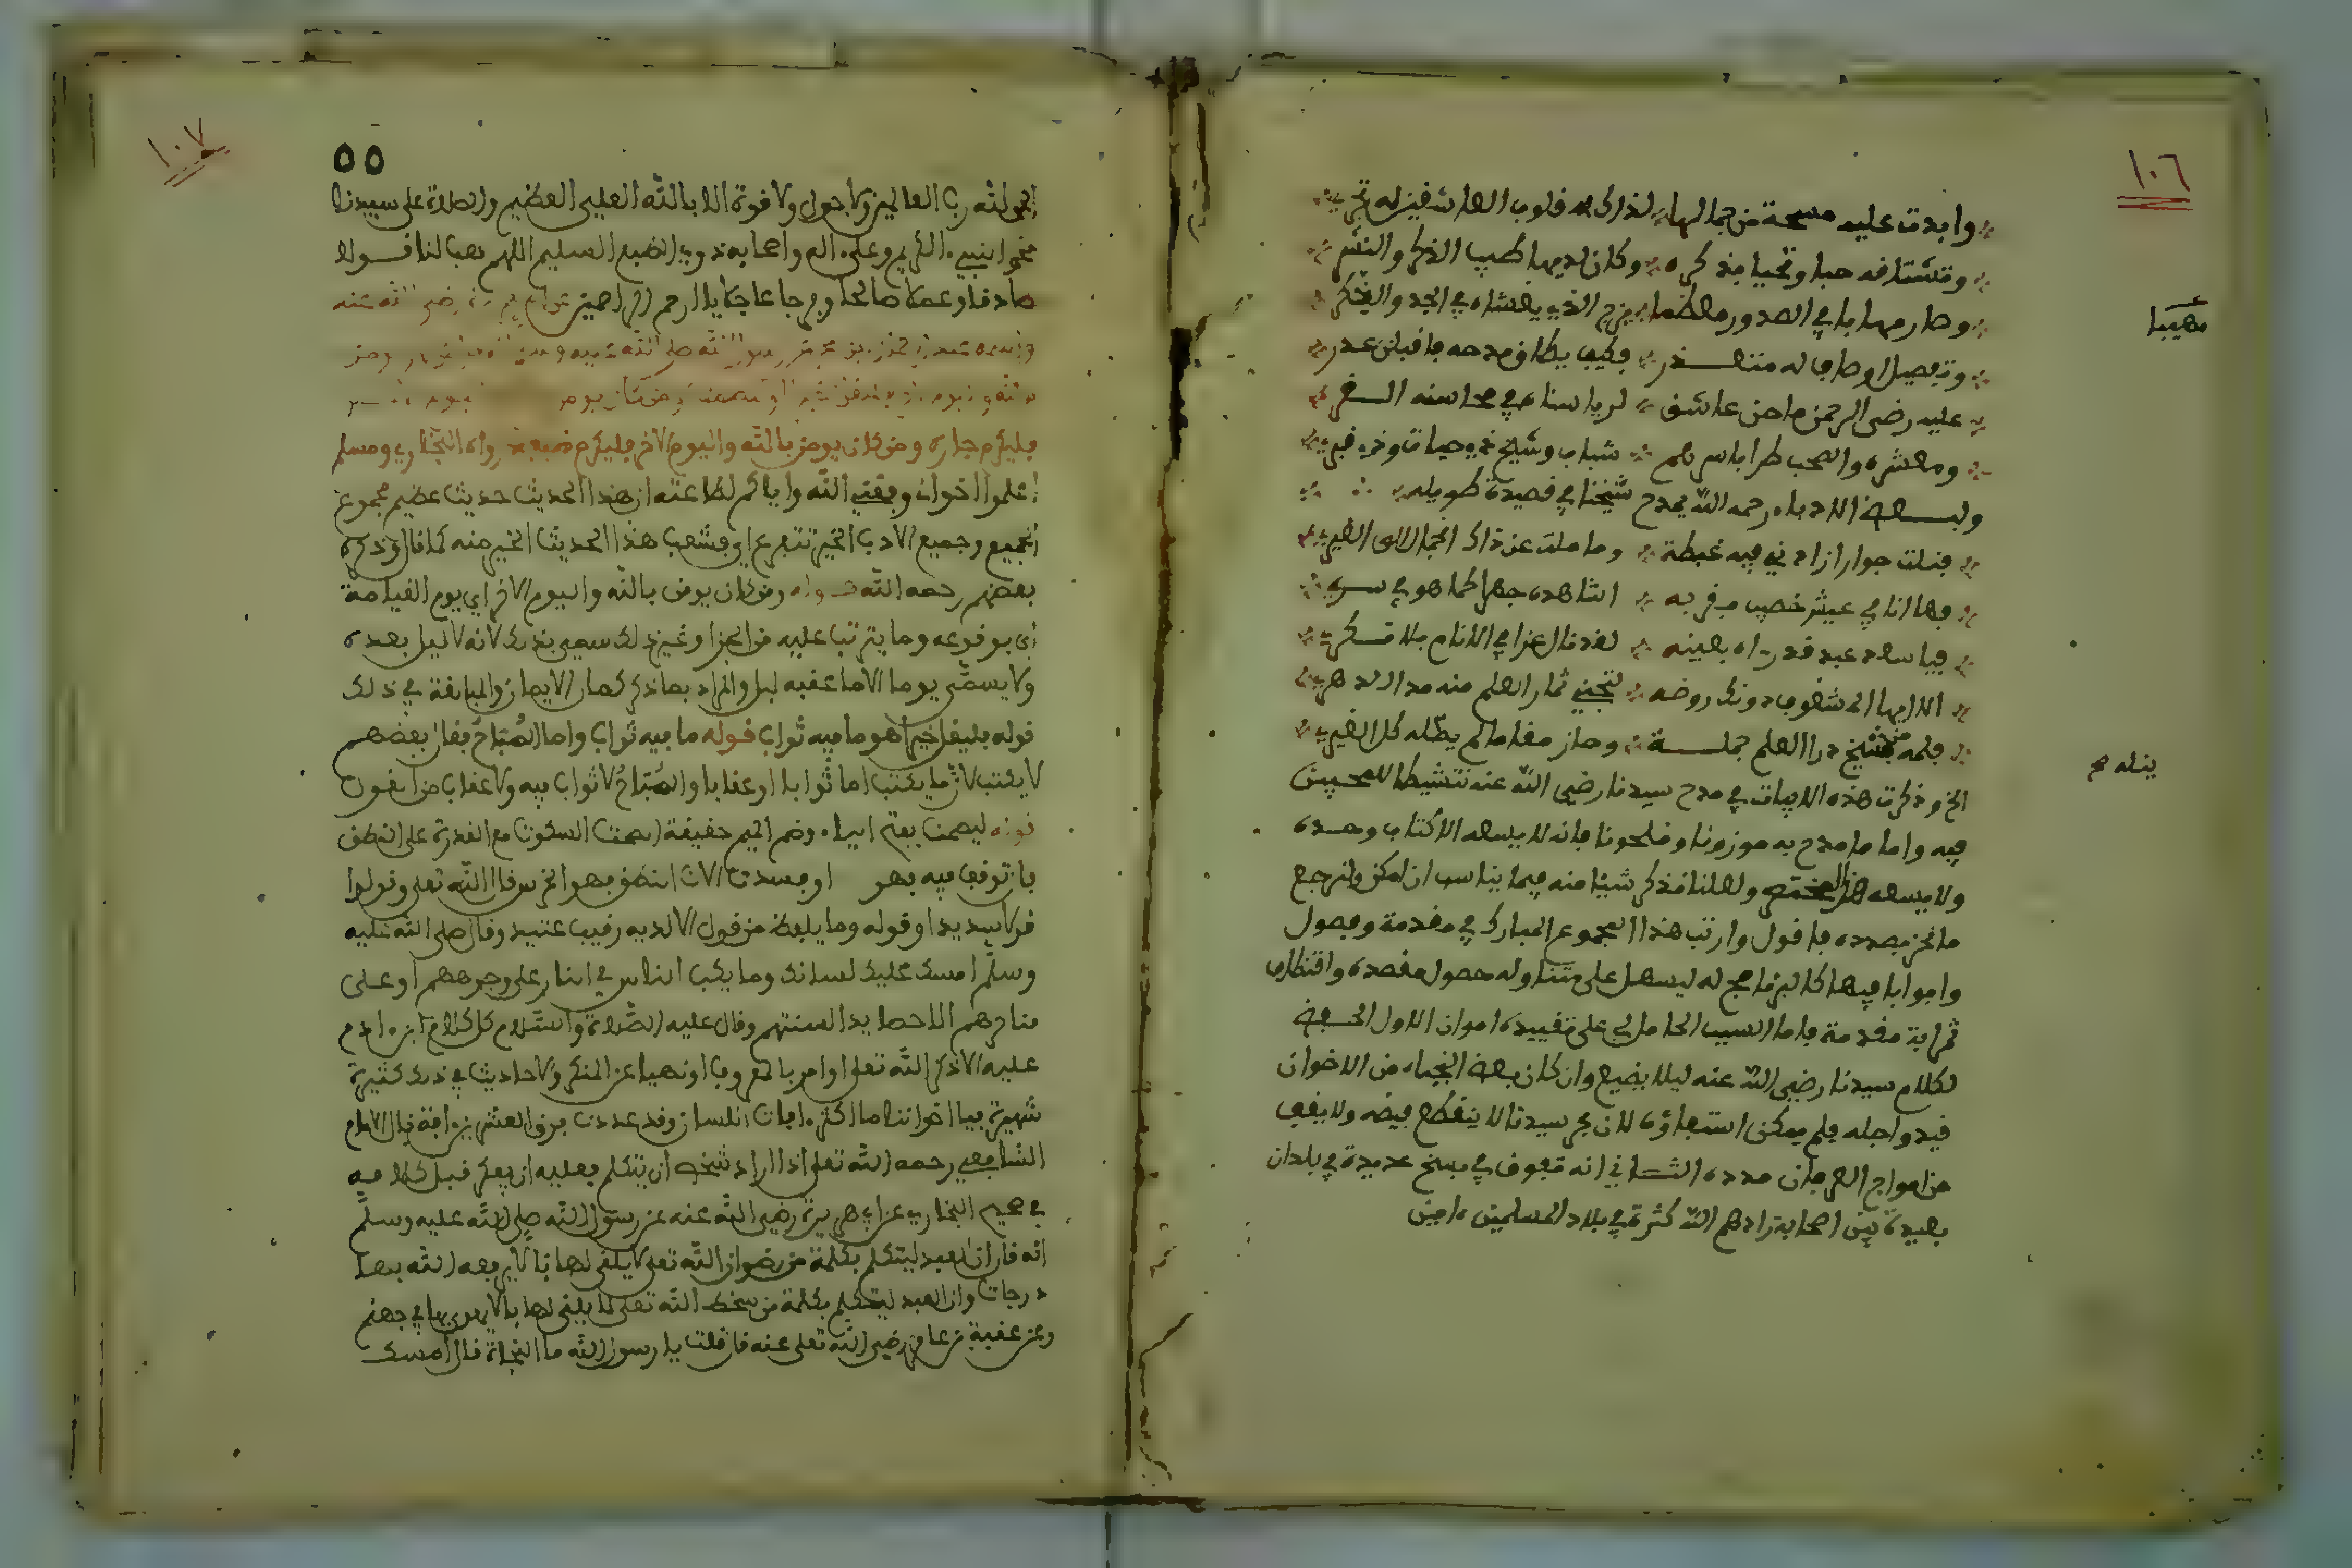 ١٠٦
وابدت عليه مسحة من جمالها لذاك قلوب العاشقين له تجري
وتشتاقه حبا وتحيا بذكره وكان لديها طيب الذكر والنشر
وصار مهابا في الصدور معظما يزج الذي يغشاه في الجد والفكر
مهيبا
وتفصيل اوصاف له متعذر فكيف يكافى مدحه فاقبلن عذر
عليه رضى الرحمن ما حن عاشق لرياسناه في محاسنه الغر
ومعشره والصحب طرا باسرهم شباب وشيخ في حيات وفي قبر
ولبعض الادباء رحمه الله يمدح شيخنا في قصيدة طويله
فنلت جوارا زادني فيه غبطة وما ملت عن ذاك الجمال الى الغير
فها انا في عيش خصيب بقربه اشاهده جهرا كما هو في سري
فيا سعد عبد قد رءاه بعينه لقد نال عزا في الانام بلا نكر
الا ايها المشغوف دونك روضه لتجني ثمار العلم منه مدا الدهر
فلمه من شيخ درا العلم جملة وحاز مقاما لم يطله كل الغير
ينله صح
الخ وذكرت هذه الابيات في مدح سيدنا رضي الله عنه تنشيطا للمحبين
فيه واما ما مدح به موزونا وملحونا فانه لا يسعه الا كتاب وحده
ولا يسعه هذا المختصر ولعلنا نذكر شيئا منه فيما يناسب ان امكن ولنرجع
ما نحن بصدده فاقول وارتب هذا المجموع المبارك في مقدمة وفصول
وابوابا فيها كالبرنامج له ليسهل على متناوله حصول مقصده واقتطاف
ثمرابة مقدمة فاما السبب الحامل لي على تقييده امران الاول الحفظ
لكلام سيدنا رضي الله عنه ليلا يضيع وان كان بعض النجباء من الاخوان
قيد واجله فلم يمكن استيفاؤه لان بحر سيدنا لا ينقطع فيضه ولا يقف
من امواج العرفان مدده الثاني انه تفرق في نسخ عديدة في بلدان
بعيدة بين اصحابة زادهم الله كثرة في بلاد المسلمين ءامين
١٠٧
٥٥
الحمد لله رب العالمين ولا حول ولا قوة الا بالله العلي العظيم والصلاة على سيدنا
محمد النبي الكريم وعلى اله واصحابه ذوي الطبع السليم اللهم هب لنا قولا
صادقا وعملا صالحا وفرجا عاجلا يا ارحم الراحمين عن ابي هريرة رضي الله عنه
فليكرم جاره ومن كان يومن بالله واليوم الاخر فليكرم ضيفه رواه البخاري ومسلم
اعلموا اخواني وفقني الله واياكم لطاعته ان هذا الحديث حديث عظيم مجموع
الجميع وجميع الادب الخير تتفرع اي وشعب هذا الحديث الخير منه كما قال وذكره
بعضهم رحمه الله قوله ومن كان يومن بالله واليوم الاخر اي يوم القيامة
اي بوقوعه وما يترتب عليه من الجزا وغير ذلك سمي بذلك لانه لا ليل بعده
ولا يسمى يوما الا ما عقبه ليل والمراد بما ذكر كمال الايمان والمبالغة في ذلك
قوله فليقل خيرا هو ما فيه ثواب قوله ما فيه ثواب واما المباح فقال بعضهم
لا يكتب لان ما يكتب اما ثوابا او عقابا والمباح لا ثواب فيه ولا عقاب
قوله ليصمت بفتح الياء وضم الميم حقيقة الصمت السكوت مع القدرة على النطق
فان توقف فيه فهو او فسدت الات النطق فهو الخرس قال الله تعلى وقولوا
قولا سديدا وقوله وما يلفظ من قول الا لديه رقيب عتيد وقال صلى الله عليه
وسلم امسك عليك لسانك وما يكب الناس في النار على وجوههم او على
مناخرهم الا حصايد السنتهم وقال عليه الصلاة والسلام كل كلام ابن ءادم
عليه الا ذكر الله تعلى او امر بالمعروف او نهيا عن المنكر والاحاديث في ذلك كثيرة
شهيرة فيا اخواننا ما اكثر افات اللسان وقد عددت فوق العشرين افة قال الامام
الشافعي رحمه الله تعلى اذا اراد شخص ان يتكلم فعليه ان يفكر قبل كلامه
في صحيح البخاري عن ابي هريرة رضي الله عنه عن رسول الله صلى الله عليه وسلم
انه قال ان العبد ليتكلم بكلمة من رضوان الله تعلى لا يلقى لها بالا يرفعه الله بها
درجات وان العبد ليتكلم بكلمة من سخط الله تعلى لا يلقى لها بالا يهوي بها في جهنم
وعن عقبة بن عامر رضي الله تعلى عنه قال قلت يا رسول الله ما النجاة قال امسك